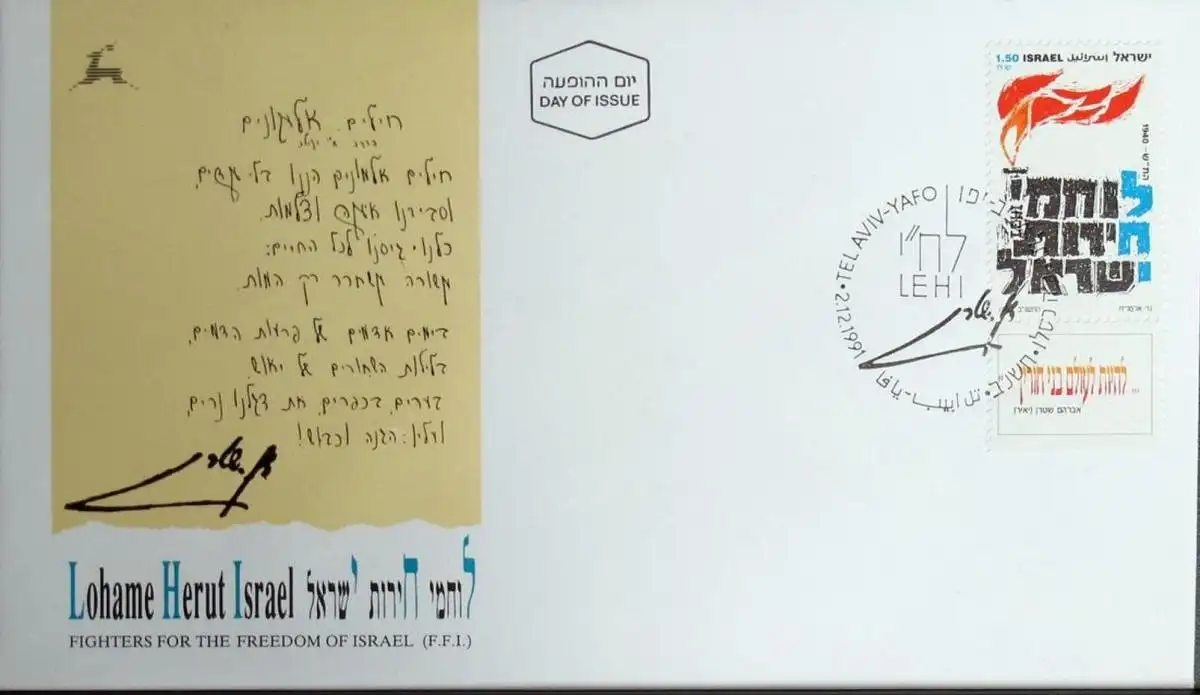 חיילים אלמונים
חיילים אלמונים הננו בלי מדים,
וסביבנו אימה וצלמות.
כלנו גויסנו לכל החיים:
משורה משחרר רק המות.
בימים אדומים של פרעות ודמים,
בלילות השחורים של יאוש.
בערים, בכפרים, את דגלנו נרים,
ועליו: הגנה וכבוש!
Lohame Herut Israel לוחמי חירות ישראל
FIGHTERS FOR THE FREEDOM OF ISRAEL (F.F.I.)
יום ההופעה
DAY OF ISSUE
TEL AVIV-YAFO
2.12.1991
לח"י
LEHI
1.50 ISRAEL اسرائيل ישראל
1940 - הת"ש
לוחמי
חירות
ישראל
LEHI
... להיות לעולם בני חורין
אברהם שטרן (יאיר)